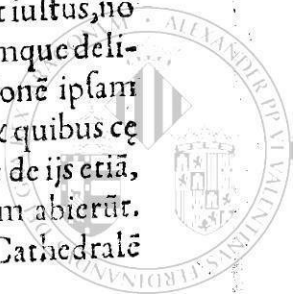 t iustus, no
mque deli-
onē ipſam
x quibus cę
de ijs etiā,
m abierūt.
Cathedralē
ALEXANDER PP VI VALENTINVS FERDINANDVS